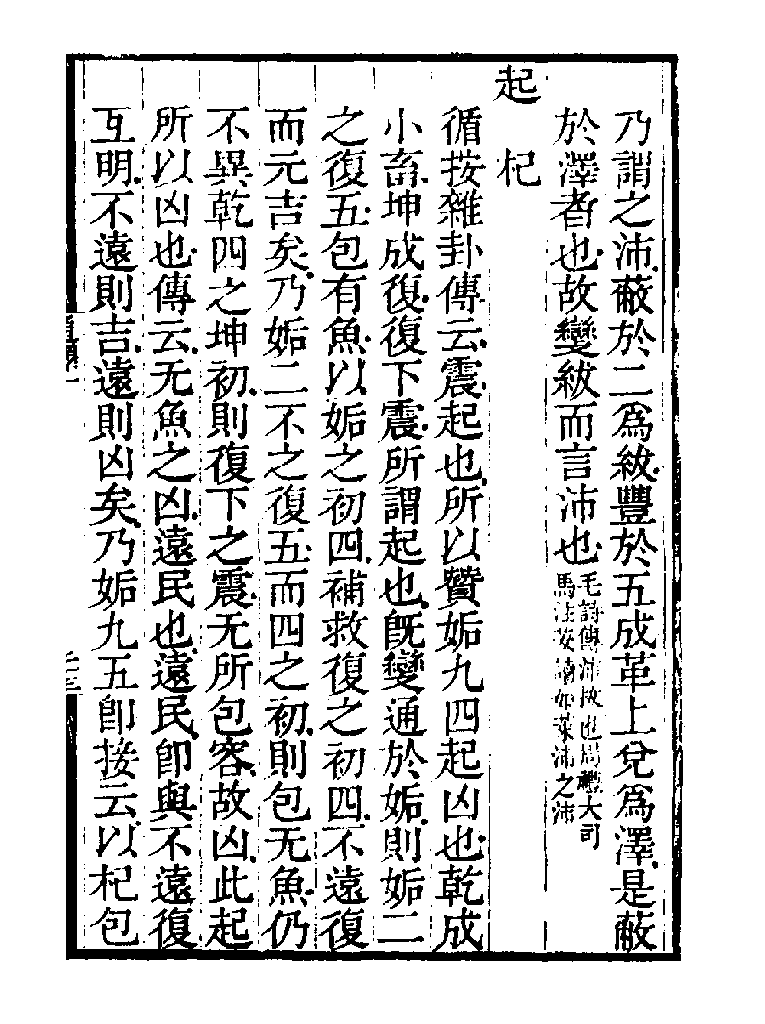 乃謂之沛蔽於二爲紱豐於五成革上兌爲澤是蔽
於澤者也故變紱而言沛也毛詩傳沛拔也周禮大司
馬注茇讀如萊沛之沛
起 杞
循按雜卦傳云震起也所以贊姤九四起凶也乾成
小畜坤成復復下震所謂起也旣變通於姤則姤二
之復五包有魚以姤之初四補救復之初四不遠復
而元吉矣乃姤二不之復五而四之初則包无魚仍
不異乾四之坤初則復下之震无所包容故凶此起
所以凶也傳云无魚之凶遠民也遠民卽與不遠復
互明不遠則吉遠則凶矣乃姤九五卽接云以杞包
二十三